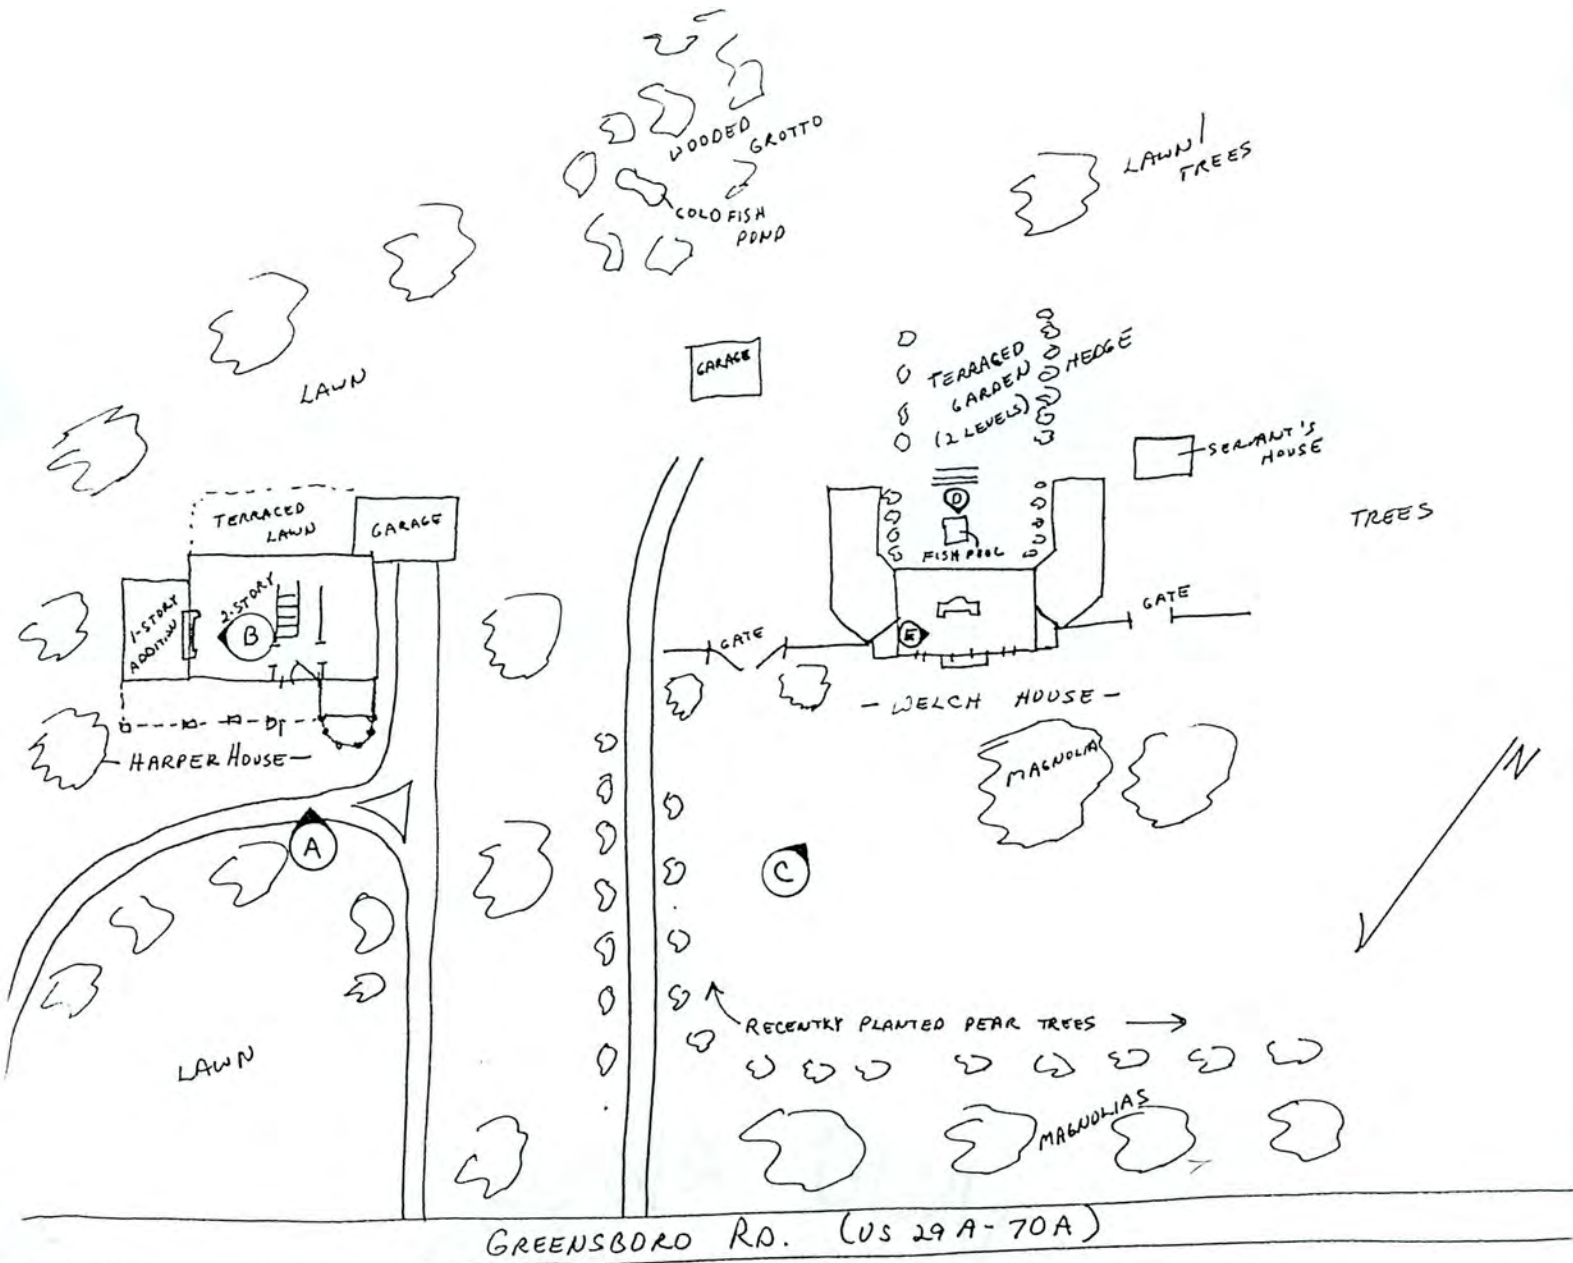 WOODED
GROTTO
GOLDFISH
POND
LAWN/
TREES
LAWN
GARAGE
TERRACED
GARDEN
(2 LEVELS)
HEDGE
SERVANT'S
HOUSE
TREES
TERRACED
LAWN
GARAGE
D
FISH POOL
1-STORY
ADDITION
2-STORY
B
GATE
E
GATE
- WELCH HOUSE -
- HARPER HOUSE -
MAGNOLIA
N
A
C
RECENTKY PLANTED PEAR TREES
LAWN
MAGNOLIAS
GREENSBORO RD. (US 29A-70A)